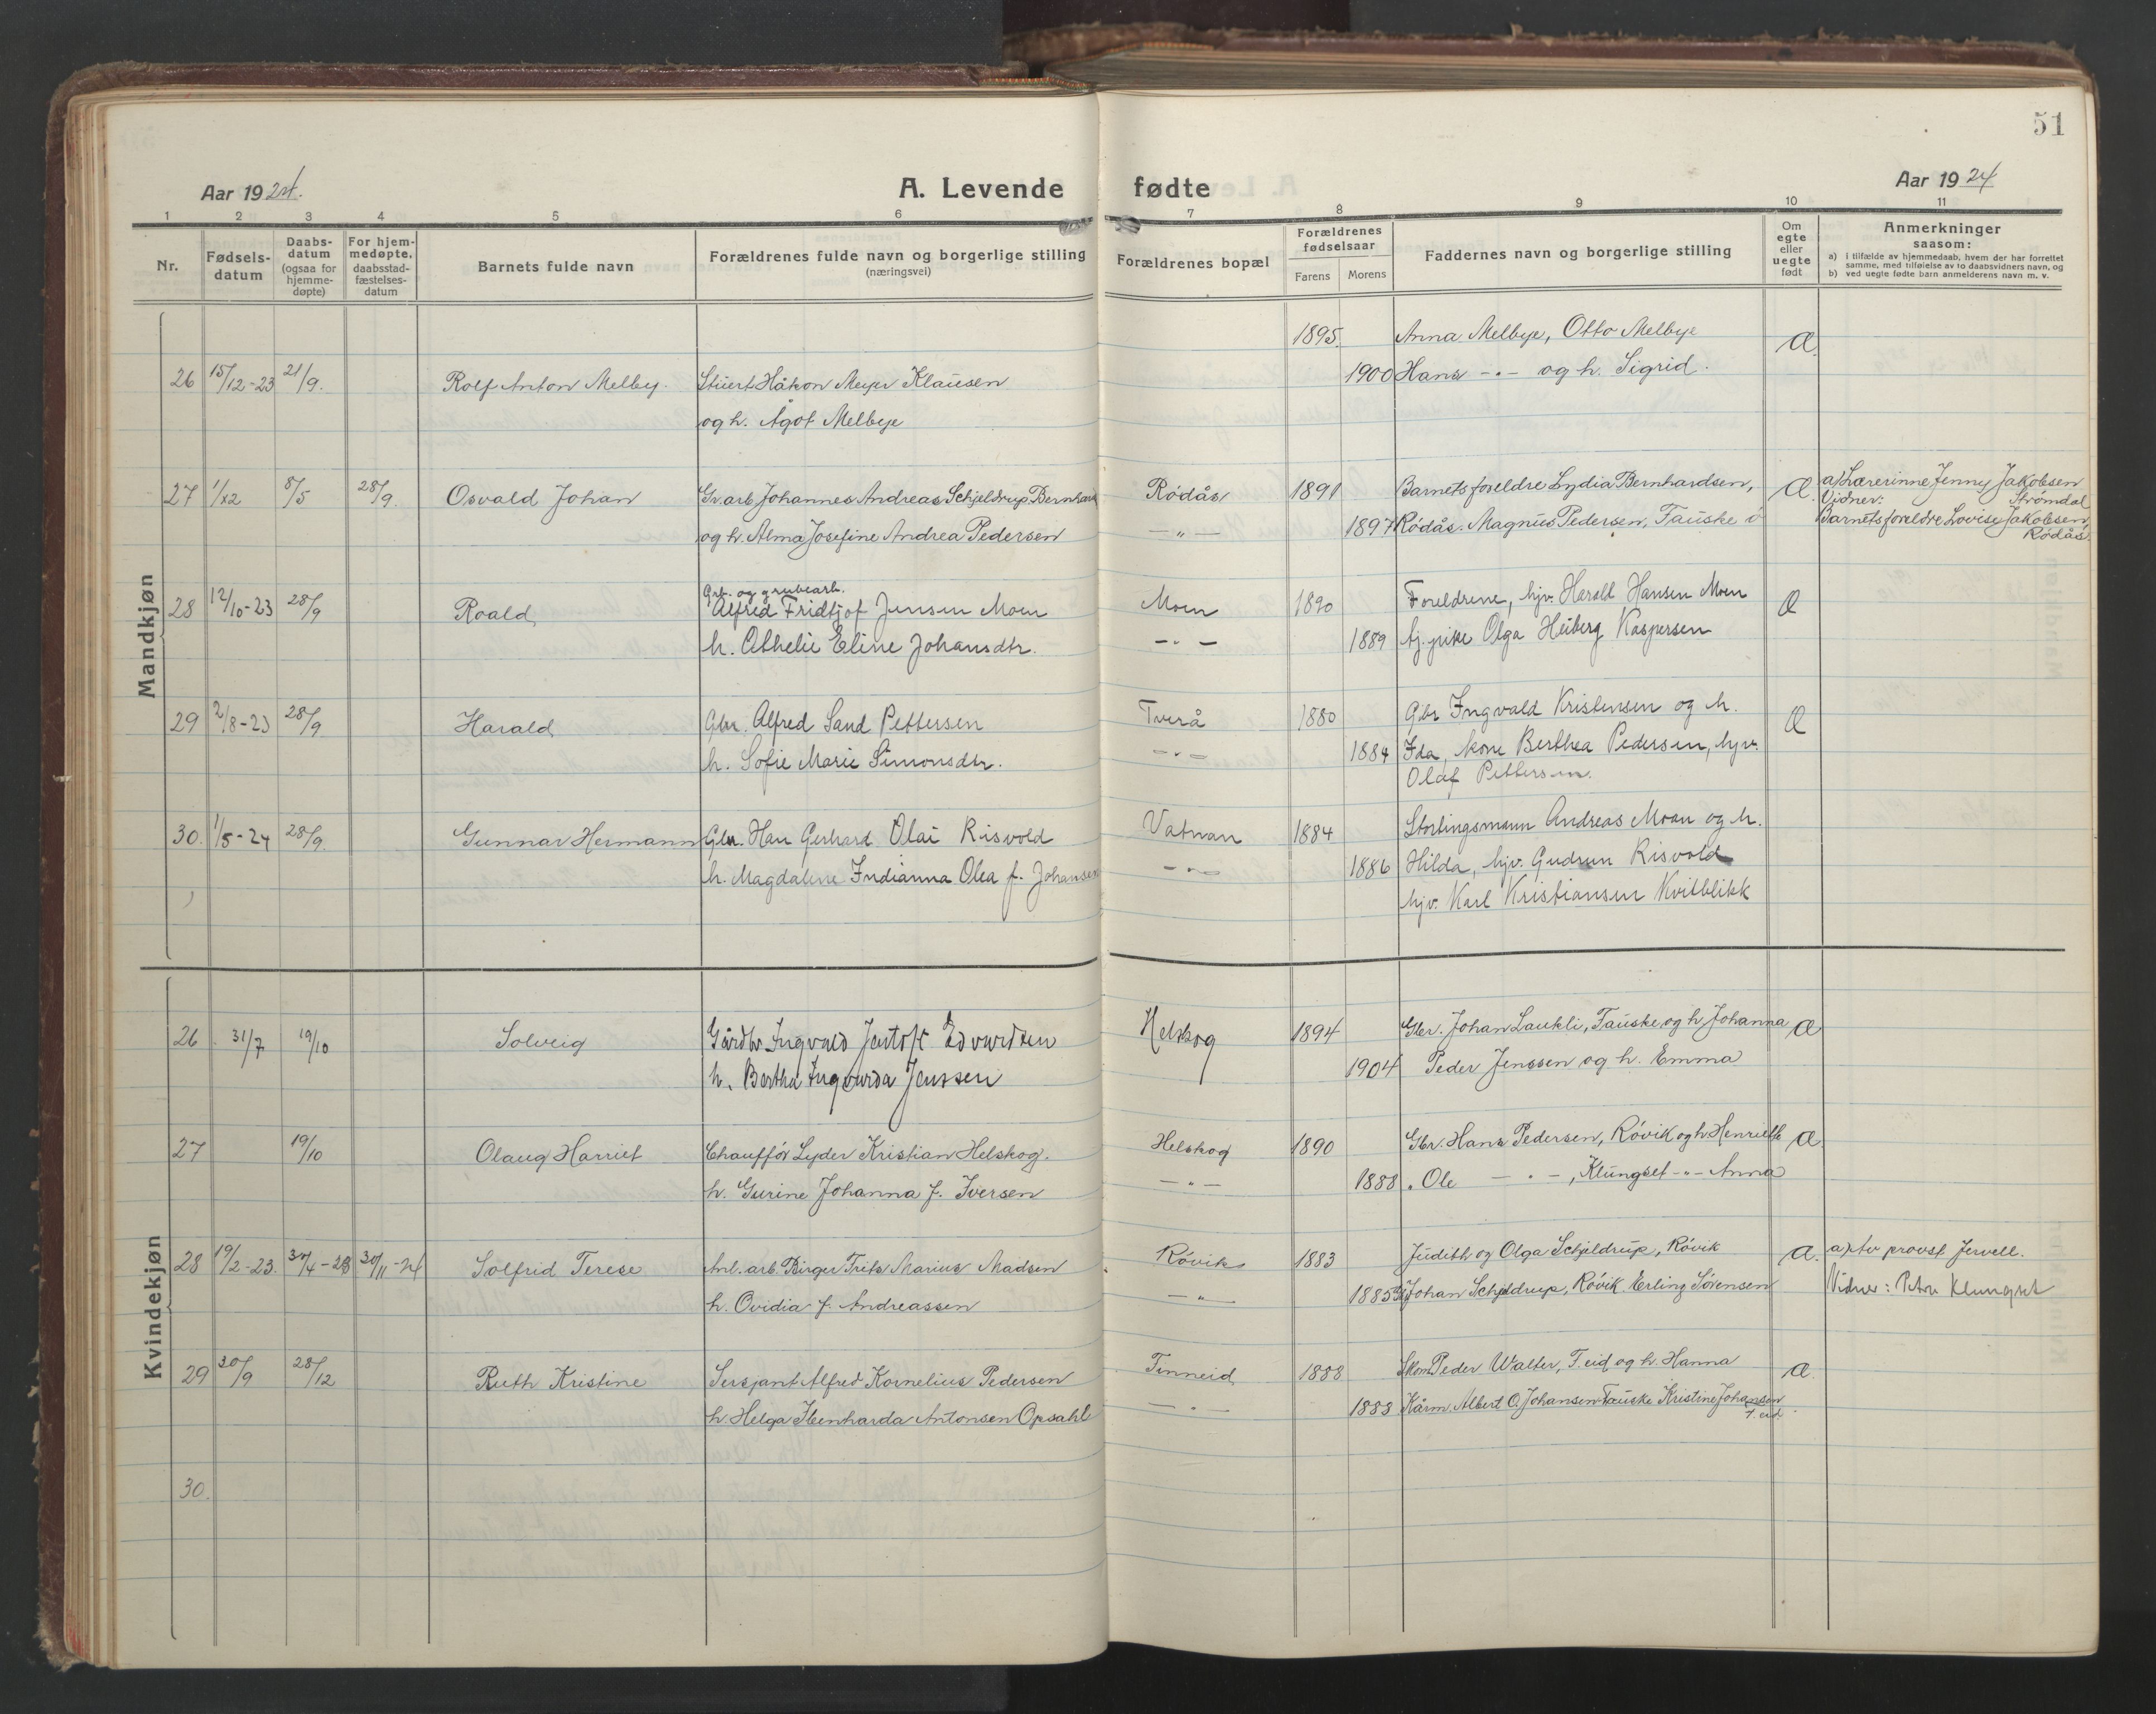 51
Aar 1924.
A. Levende fødte
Aar 1924
1 2 3 4 5 6 7 8 9 10 11
Nr.
Fødsels-
datum
Daabs-
datum
(ogsaa for
hjemme-
døpte)
For hjem-
medøpte,
daabsstad-
fæstelses-
datum
Barnets fulde navn
Forældrenes fulde navn og borgerlige stilling
(næringsvei)
Forældrenes bopæl
Forældrenes
fødselsaar
Farens Morens
Faddernes navn og borgerlige stilling
Om
egte
eller
uegte
født
Anmerkninger
saasom:
a) i tilfælde av hjemmedaab, hvem der har forrettet
samme, med tilføielse av to daabsvidners navn, og
b) ved uegte fødte barn anmelderens navn m. v.
Mandkjøn
1895. Anna Melbye, Otto Melbye Æ.
26 15/12-23 21/9. Rolf Anton Melby. Stuert Håkon Meyer Klausen 1900 Hans -"- og h. Sigrid.
og h. Ågot Melbye
27 1/12 8/5 28/9. Osvald Johan Gr.arb. Johannes Andreas Schjeldrup Bernhard Rödås 1891 Barnets foreldre Lydia Bernhardsen, Æ. a) Lærerinne Jenny Jakobsen
Strømdal
Vidner:
og h. Alma Josefine Andrea Pedersen -"- 1897 Rödås. Magnus Pedersen, Fauske Barnets foreldre Lovise Jakobsen,
Rødås.
Grb. og grubearb.
28 12/10-23 28/9 Roald Alfred Fridtjof Jensen Moen Moen 1890 Foreldrene, hjv. Harald Hansen Moen Æ
h. Athelie Eline Johansdtr. -"- 1889 tj. pike Olga Heiberg Kaspersen
29 2/8-23 28/9 Harald Gbr. Alfred Sand Pettersen Tverå 1880 Gbr Ingvald Kristensen og h. Æ
h. Sofie Marie Simonsdtr. -"- 1884 Ida, kone Berthea Pedersen, hjv.
Olaf Pettersen.
30. 1/5-24 28/9. Gunnar Hermann Gbr. Han Gerhard Olai Risvold Vatnan 1884 Stortingsmann Andreas Moan og h.
h. Magdalene Indianna Olea f. Johansen -"- 1886 Hilda, hjv. Gudrun Risvold
hjv. Karl Kristiansen Kvitblikk
Kvindekjøn
26 31/7 19/10 Solveig Gårdbr Ingvald Jentoft Edvardsen Helskog 1894 Gbr. Johan Laukli, Fauske og h. Johanna Æ
h. Bertha Ingvarda Jenssen 1904 Peder Jenssen og h. Emma
27 19/10 Olaug Harriet Chauffør Lyder Kristian Helskog. Helskog 1890 Gbr. Hans Pedersen, Røvik og h. Henriette Æ
h. Gurine Johanna f. Iversen -"- 1888 " Ole -"-, Klungset -"- Anna
28 19/2-23. /4-23 30/11-24 Solfrid Terese Anl.arb. Birger Frits Marius Madsen Røvik 1883 Judith og Olga Schjeldrup, Røvik Æ. a) av provst Jervell.
h. Ovidia f. Andreassen -"- 1885 Johan Schjeldrup, Røvik. Erling Sørensen Vidner: Petra Klungset
29 30/9 28/12 Ruth Kristine Sersjant Alfred Kornelius Pedersen Finneid 1888 Skom. Peder Walter, F.eid og h. Hanna Æ.
h. Helga Ibenharda Antonsen Opsahl -"- 1883 Kårm. Albert O. Johansen Fauske Kristine Johansen
F.eid.
30.